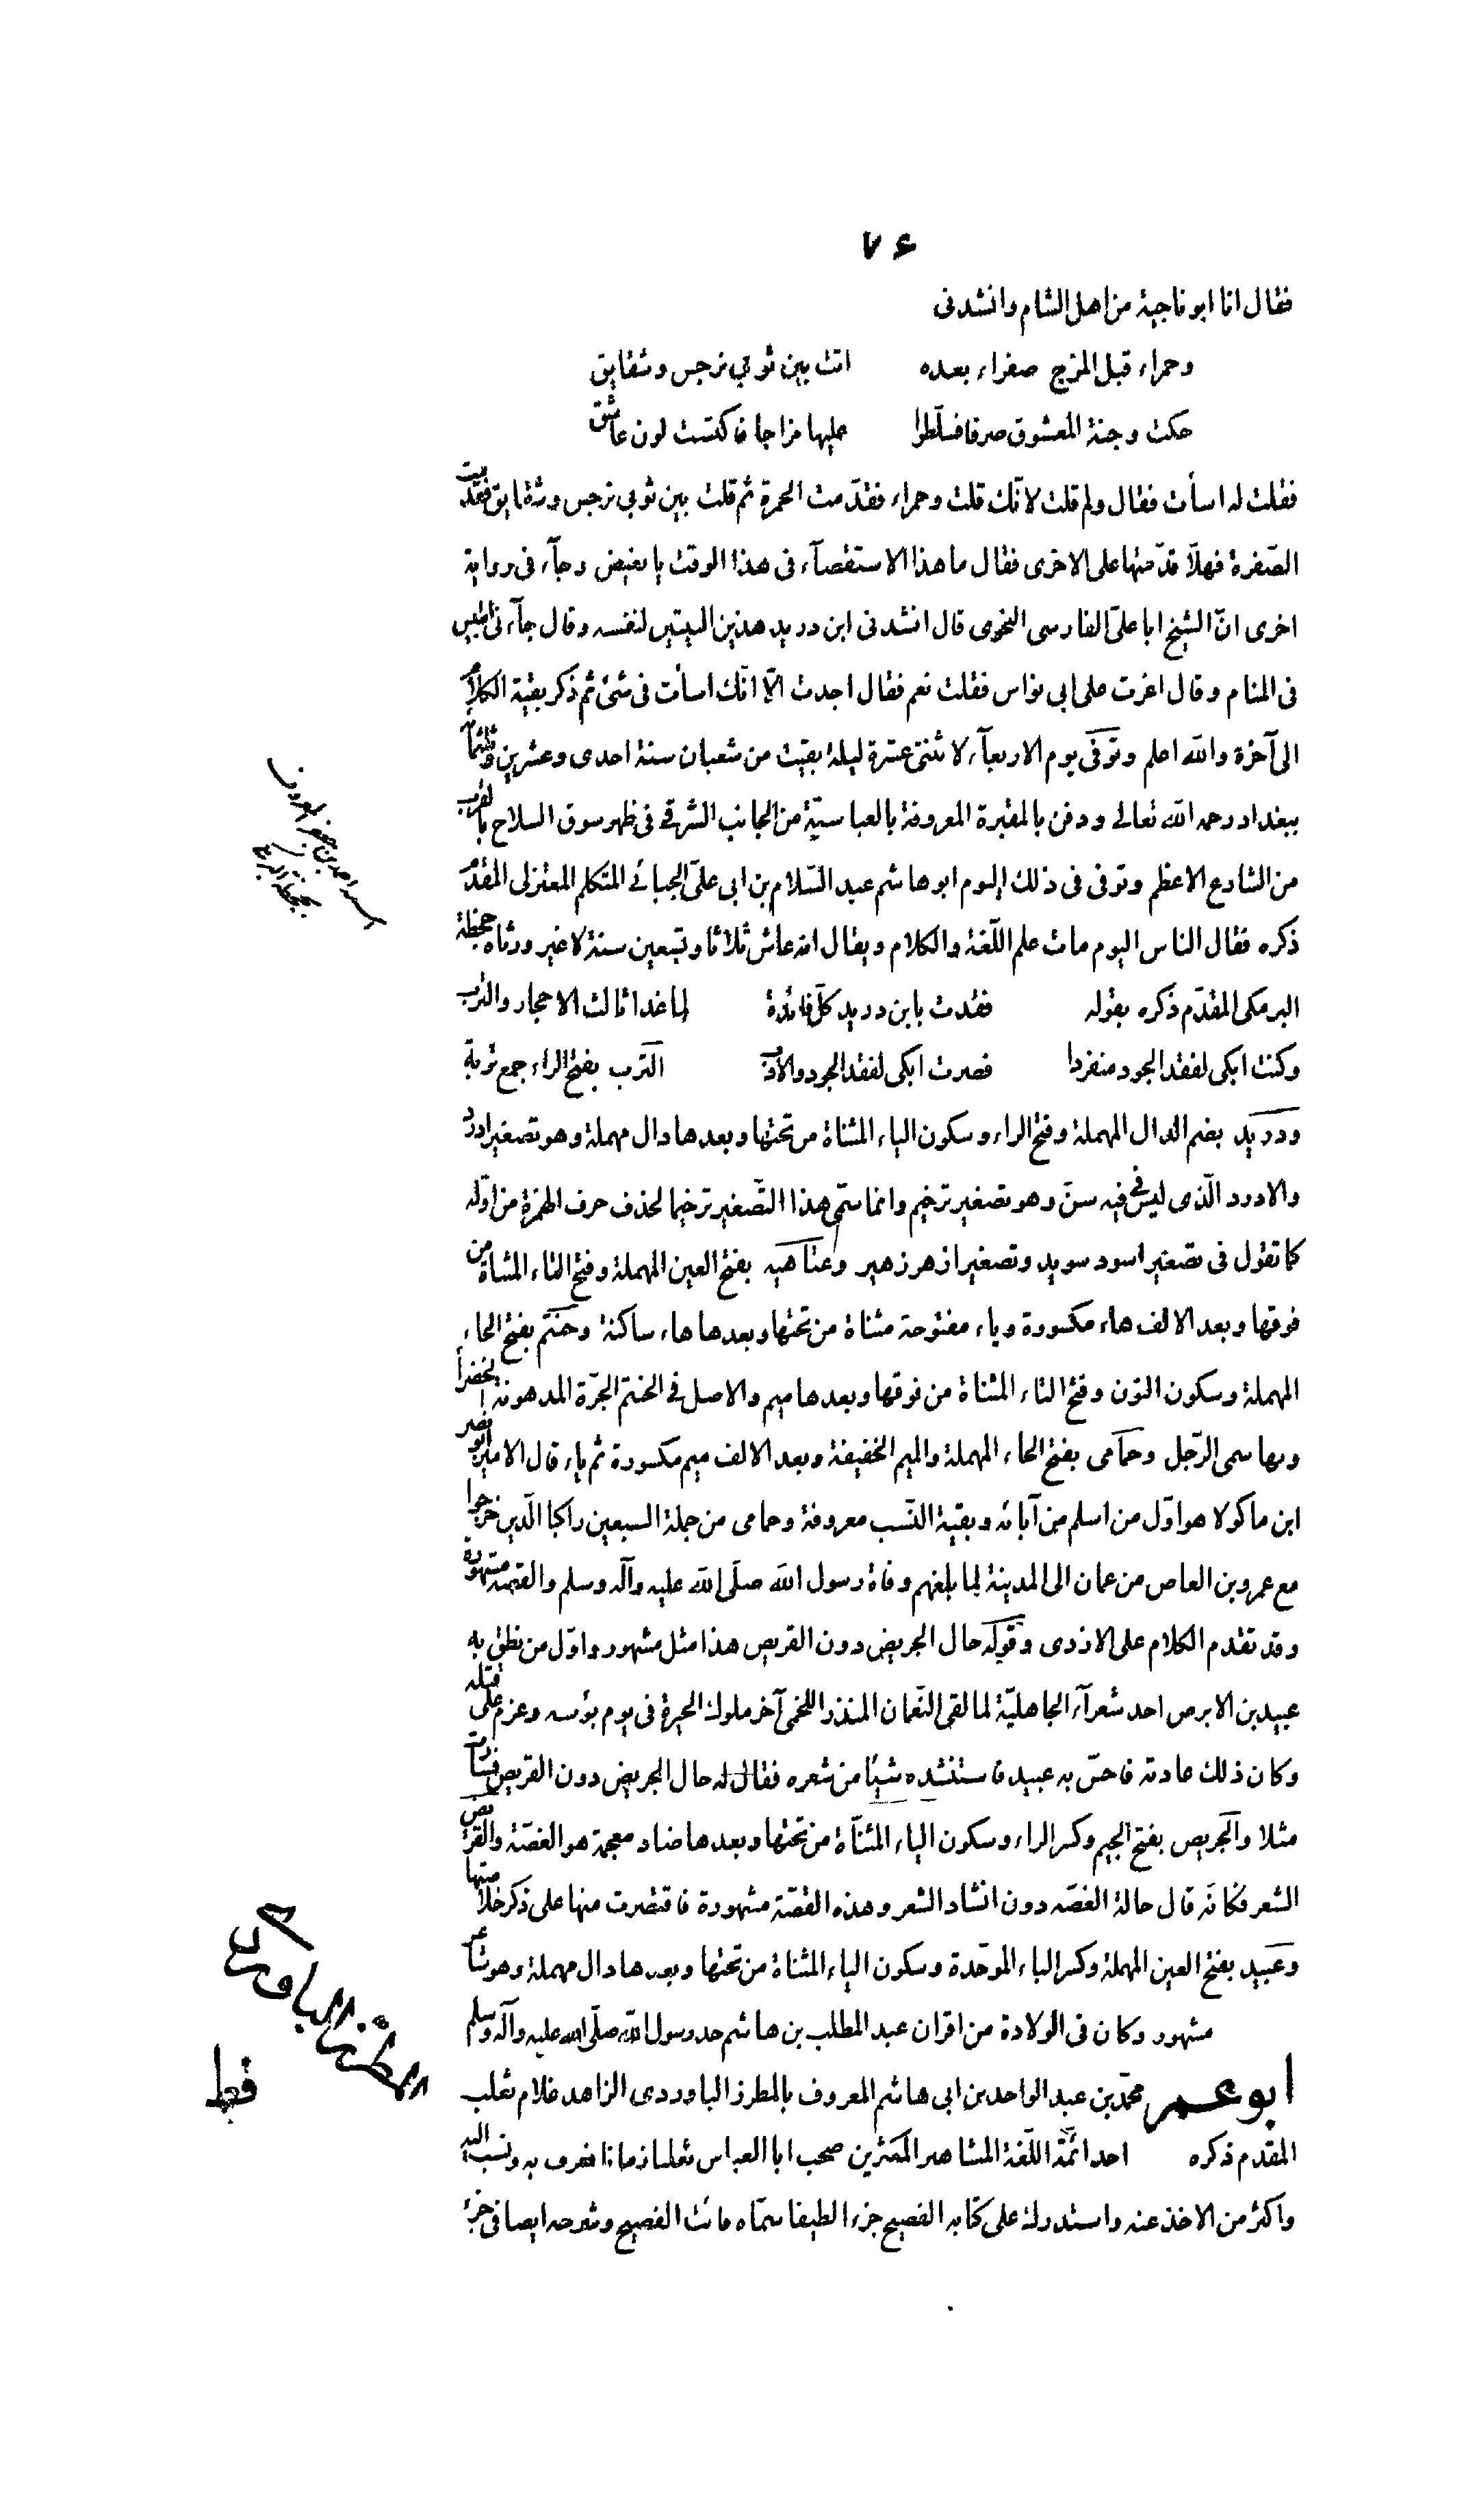 ٧۶
فقال انا ابو ناجية من اهل الشام وانشدنى
وحمراء قبل المزج صفراء بعده اتت بين ثوبي نرجس وشقايق
حكت وجنة المعشوق صرفا فسلّطوا عليها مزاجا فاكتست لون عاشق
فقلت له اسأت فقال ولم قلت لانّك قلت وحمراء فقدّمت الحمرة ثم قلت بين ثوبي نرجس وشقايق فقدّمت
الصّفرة فهلّا قدّمتها على الاخرى فقال ما هذا الاستقصآء فى هذا الوقت يا بغيض وجآء فى رواية
اخرى انّ الشيخ ابا علىّ الفارسى النحوى قال انشدنى ابن دريد هذين البيتين لنفسه وقال جآءنى ابليس
فى المنام وقال اغرت على ابى نواس فقلت نعم فقال اجدت الّا انّك اسأت فى شئ ثم ذكر بقية الكلام
الى آخره والله اعلم وتوفّى يوم الاربعآء لاثنتى عشرة ليلة بقيت من شعبان سنة احدى وعشرين وثلثمائة
ببغداد رحمه الله تعالى ودفن بالمقبرة المعروفة بالعباسيّة من الجانب الشرقى فى ظهر سوق السلاح بالقرب
من الشارع الاعظم وتوفى فى ذلك اليوم ابو هاشم عبد السّلام بن ابى علىّ الجبائى المتكلم المعتزلى المقدّم
ذكره فقال الناس اليوم مات علم اللّغة والكلام ويقال انه عاش ثلاثا وتسعين سنة لا غير ورثاه جحظة
البرمكى المقدّم ذكره بقوله فقدت بابن دريد كلّ فائدة لما غدا ثالث الاحجار والترب
وكنت ابكى لفقد الجود منفردا فصرت ابكى لفقد الجود والادب الترب بفتح الراء جمع تربة
ودريد بضم الدال المهملة وفتح الراء وسكون الياء المثناة من تحتها وبعدها دال مهملة وهو تصغير ادرد
والادرد الّذى ليس فى فيه سنّ وهو تصغير ترخيم وانما سمّى هذا التّصغير ترخيما لحذف حرف الهمزة من اوّله
كما تقول فى تصغير اسود سويد وتصغير ازهر زهير وعتاهيه بفتح العين المهملة وفتح التاء المثناة من
فوقها وبعد الالف هاء مكسورة وياء مفتوحة مثناة من تحتها وبعدها هاء ساكنة وحنتم بفتح الحاء
المهملة وسكون النون وفتح التاء المثناة من فوقها وبعدها ميم والاصل فى الحنتم الجرّة المدهونة الخضراء
وبها سمى الرّجل وحمامى بفتح الحاء المهملة والميم الخفيفة وبعد الالف ميم مكسورة ثم ياء قال الامير ابو نصر
ابن ماكولا هو اوّل من اسلم من آبائه وبقية النّسب معروفة وحمامى من جملة السبعين راكبا الّذين خرجوا
مع عمرو بن العاص من عمان الى المدينة لما بلغهم وفاة رسول الله صلّى الله عليه وآله وسلم والقصة مشهورة
وقد تقدم الكلام على الازدى وقوله حال الجريض دون القريض هذا مثل مشهور واوّل من نطق به
عبيد بن الابرص احد شعرآء الجاهليّة لما لقى النّعمان المنذر اللخمى آخر ملوك الحيرة فى يوم بؤسه وعزم على قتله
وكان ذلك عادته فاحسّ به عبيد فاستنشده شيئا من شعره فقال له حال الجريض دون القريض فسارت
مثلا والجريض بفتح الجيم وكسر الراء وسكون الياء المثنّاة من تحتها وبعدها ضاد معجمة هو الغصّة والقريض
الشعر فكانّه قال حالة الغصّه دون انشاد الشعر وهذه القصّة مشهورة فاقتصرت منها على ذكر خلاصتها
وعبيد بفتح العين المهملة وكسر الباء الموحّدة وسكون الياء المثناة من تحتها وبعدها دال مهملة وهو شاعر
مشهور وكان فى الولادة من اقران عبد المطلب بن هاشم جد رسول الله صلّى الله عليه وآله وسلم
ابو عمر محمّد بن عبد الواحد بن ابى هاشم المعروف بالمطرز الباوردى الزاهد غلام ثعلب
المقدم ذكره احد ائمّة اللّغة المشاهير المكثرين صحب ابا العباس ثعلبا زمانا فعرف به ونسب اليه
واكثر من الاخذ عنه واستدرك على كتابه الفصيح جزء الطيفا سمّاه فائت الفصيح وشرحه ايضا فى جزء
المطرز الباوردى